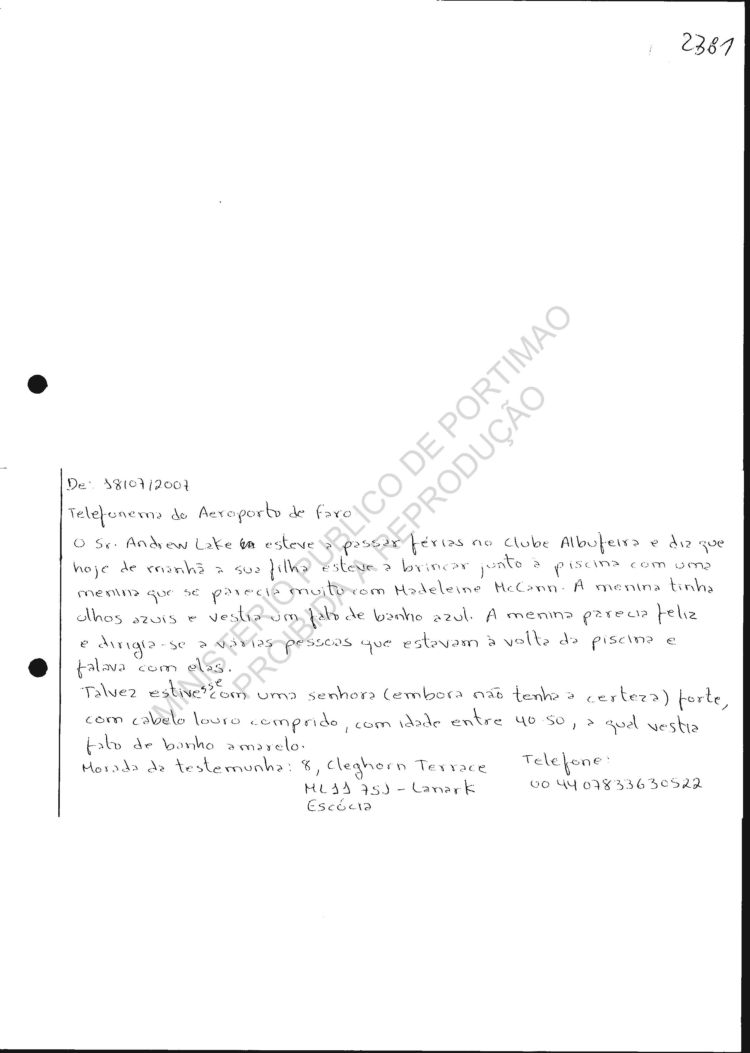 2381
MINISTERIO PUBLICO DE PORTIMAO
PROIBIDA A REPRODUÇÃO
De: 18/07/2007
Telefonema do Aeroporto de Faro
O Sr. Andrew Lake esteve a passar férias no Clube Albufeira e diz que
hoje de manhã a sua filha esteve a brincar junto à piscina com uma
menina que se parecia muito com Madeleine McCann. A menina tinha
olhos azuis e vestia um fato de banho azul. A menina parecia feliz
e dirigia-se a várias pessoas que estavam à volta da piscina e
falava com elas.
Talvez estivesse com uma senhora (embora não tenha a certeza) forte,
com cabelo louro comprido, com idade entre 40-50, a qual vestia
fato de banho amarelo.
Morada da testemunha: 8, Cleghorn Terrace
ML11 7SJ - Lanark
Escócia
Telefone:
00 44 07833630522